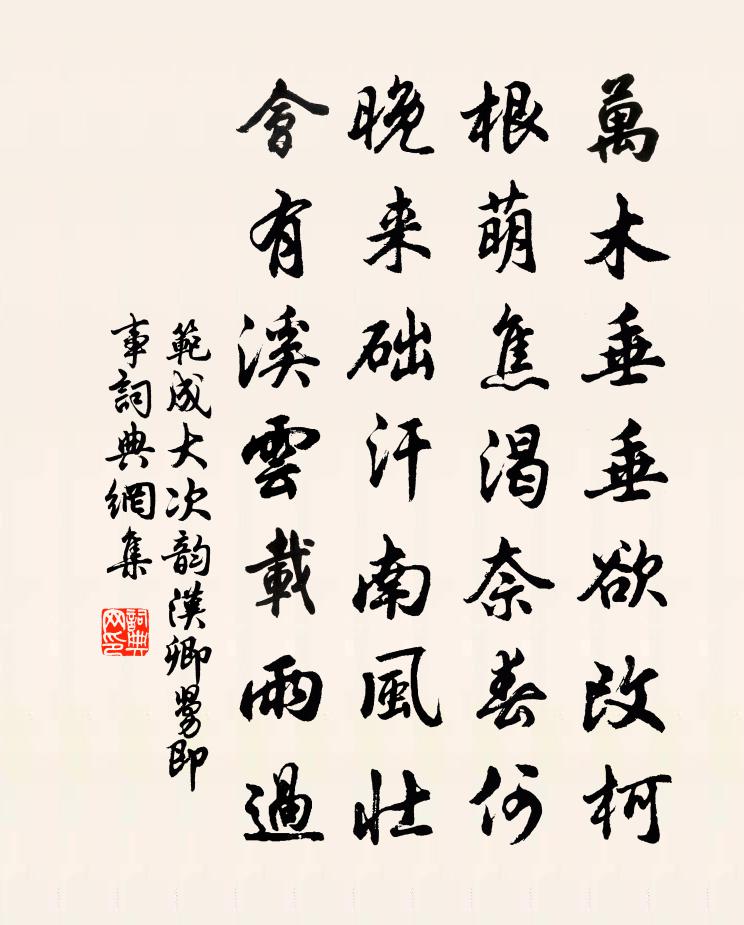 萬木垂垂欲改柯
根萌焦渴奈春何
晚来础汗南風壮
會有溪雲載雨過
範成大次韵漢卿舅即
事詞典網集
詞典网印